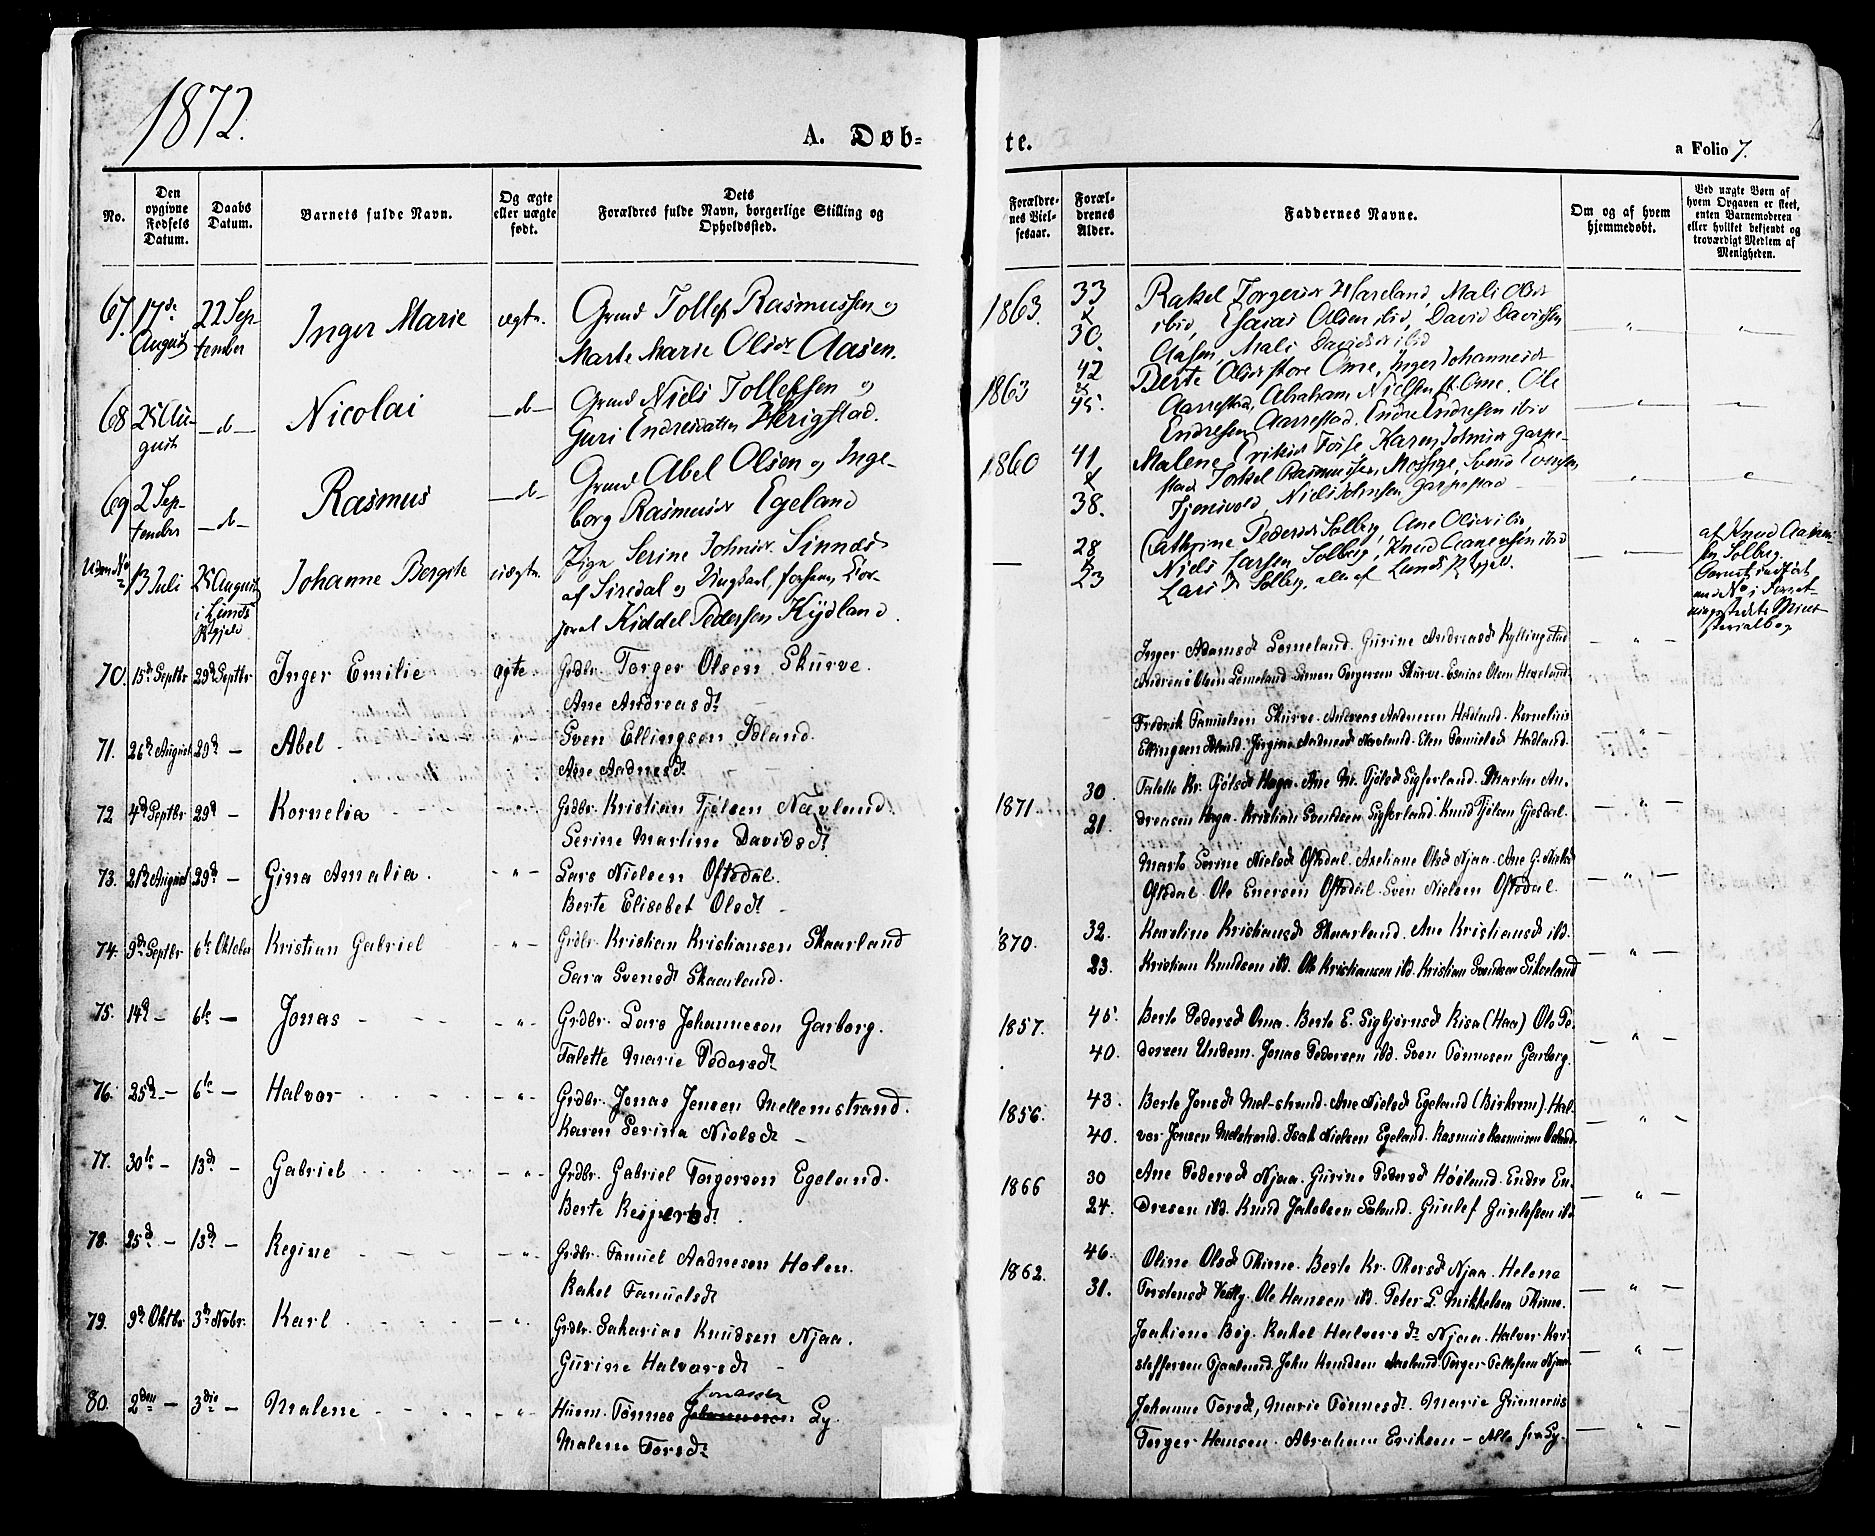 1872.
A. Døb-
te.
a Folio 7.
No.
Den opgivne Fødsels Datum.
Daabs Datum.
Barnets fulde Navn.
Og ægte eller uægte født.
Dets Forældres fulde Navn, borgerlige Stilling og Opholdssted.
Forældrenes Vielsesaar.
Forældrenes Alder.
Faddernes Navne.
Om og af hvem hjemmedøbt.
Ved uægte Børn af hvem Opgaven er skeet, enten Barnemoderen eller hvilket bekjendt og troværdigt Medlem af Menigheden.
67. 17de August 22 September Inger Marie ægte. Grmd Tollef Rasmussen og
Marte Marie Olsdr Aasen.
1863. 33 & 30. Rakel Torgersdr Hareland, Mali Olsdr
ibid, Esaias Olsen ibid, David Davidsen
Aasen, Mali Davidsdr ibid
68 25 August — d — Nicolai — d — Grmd Niels Tollefsen og
Guri Endresdatter Herigstad.
1863 42 & 45. Berte Olsdr store Ome, Inger Johannesdr
Aarrestad, Abraham Nielsen st. Ome. Ole
Endresen Aarrestad. Endre Endresen ibid
69 2 September — d — Rasmus — d — Grmd Abel Olsen og Inge-
borg Rasmusdr Egeland
1860 41 & 38. Malene Eriksdr Fosse, Karen Johnsdr Garpe-
stad Torkel Rasmussen Mossige, Svend
Niels Johnsen Garpestad
Uden No 13 Juli 25 August i Lunds Pgjeld Johanne Bergite uægte. Pige Serine Johnsdr. Sinnes
af Siredal og Ungkarl, forhen Cor-
poral Kiddel Pedersen Kydland.
— 28 & 23 Cathrine Pedersdr Solberg, Ane Olsdr ibid,
Niels Larsen Solberg, Knud Aanensen ibid
Lars Solberg, alle af Lunds Pgjeld.
af Knud Aanen-
sen Solberg.
Barnet indført
med No i Fornet-
ningsstedets Mini-
sterialbog
70. 15de Septbr 29de Septbr Inger Emilie ægte Grdbr. Torger Olsen Skurve.
Ane Andreasdt.
Inger Adamsdt Lomeland. Gurine Andreasdt Kyllingstad
Andreas Olsen Lomeland. Simon Torgersen Skurve. Esaias Olsen Hegelund.
71. 26de August 29de — Abel - Sven Ellingsen Idland.
Ane Aadnesdt
Fredrik Tanielsen Skurve. Andreas Aadnesen Hadland. Kornelius
Ellingsen Idland. Jørgine Aadnesdt Navland. Elen Tanielsdt Hadland.
72 4de Septbr 29de — Kornelia Grdbr. Kristian Tjølsen Navland.
Serine Martine Davidsdt.
1871 30. 21. Talette Kr. Tjølsdt Haga. Ane M. Tjølsdt Sigferland. Martin An-
dreasen Haga. Kristian Svendsen Sigferland. Knud Tjølsen Gjesdal.
73. 21de August 29de — Gina Amalia. Lars Nielsen Oftedal.
Berte Elisebet Olsdt -
Marte Serine Nielsdt Oftedal. Axeliane Olsdt Njaa. Ane G. Nielsdt
Oftedal. Ole Enersen Oftedal. Sven Nielsen Oftedal.
74. 9de Septbr 6te Oktober Kristian Gabriel Grdbr. Kristian Kristiansen Skaarland
Sara Svensdt Skaarland.
1870. 32. 23. Karoline Kristiansdt Skaarland. Ane Kristiansdt ibd.
Kristian Knudsen ibd. Ole Kristiansen ibd. Kristian Svendsen Sikveland
75. 14de — 6te — Jonas Grdbr. Lars Johannesen Garborg.
Talette Marie Pedersdt
1857. 45. 40. Berte Pedersdt Oma. Berte E. Sigbjørnsdt Risa (Haa) Ole Pe-
dersen Undem. Jonas Pedersen ibd. Sven Tønnesen Garborg.
76. 25de — 6te — Halvor Grdbr. Jonas Jensen Mellemstrand.
Karen Serina Nielsdt —
1856. 43. 40. Berte Jonsdt Mel-strand. Ane Nielsdt Egeland (Birkrem). Hal-
vor Jonsen Melstrand. Isak Nielsen Egeland. Rasmus Rasmusen
77. 30te — 13de — Gabriel Grdbr. Gabriel Torgersen Egeland.
Berte Reijertsdt.
1866 30 24. Ane Pedersdt Njaa. Gurine Pedersdt Høiland. Endre En-
dresen ibd. Knud Jakobsen Søland. Gunlef Gunlefsen ibd.
78. 25de — 13de — Regine Grdbr. Tanuel Aadnesen Holen.
Rakel Tanuelsdt
1862. 46. 31. Oline Olsdt Thime. Berte Kr. Thorsdt Njaa. Helene
Torstensdt Vestly. Ole Hansen ibd. Peter L. Mikkelsen Thime.
79. 9de Oktbr 3de Novbr. Karl Grdbr. Sakarias Knudsen Njaa.
Gurine Halvorsdt -
Joakime Bøg. Rakel Halvorsdt Njaa. Halvor Kri-
stoffersen Tjaaland. John Knudsen Aaslund. Torger Tollefsen Njaa
80. 2den — 3die — Malene Husm. Tønnes Johannesen Jonassen Ly.
Malene Torsdt
Johanne Torsdt, Marie Tønnesdt. Marie Gunnerius
Torger Hansen. Abraham Eriksen — Alle fra Ly.